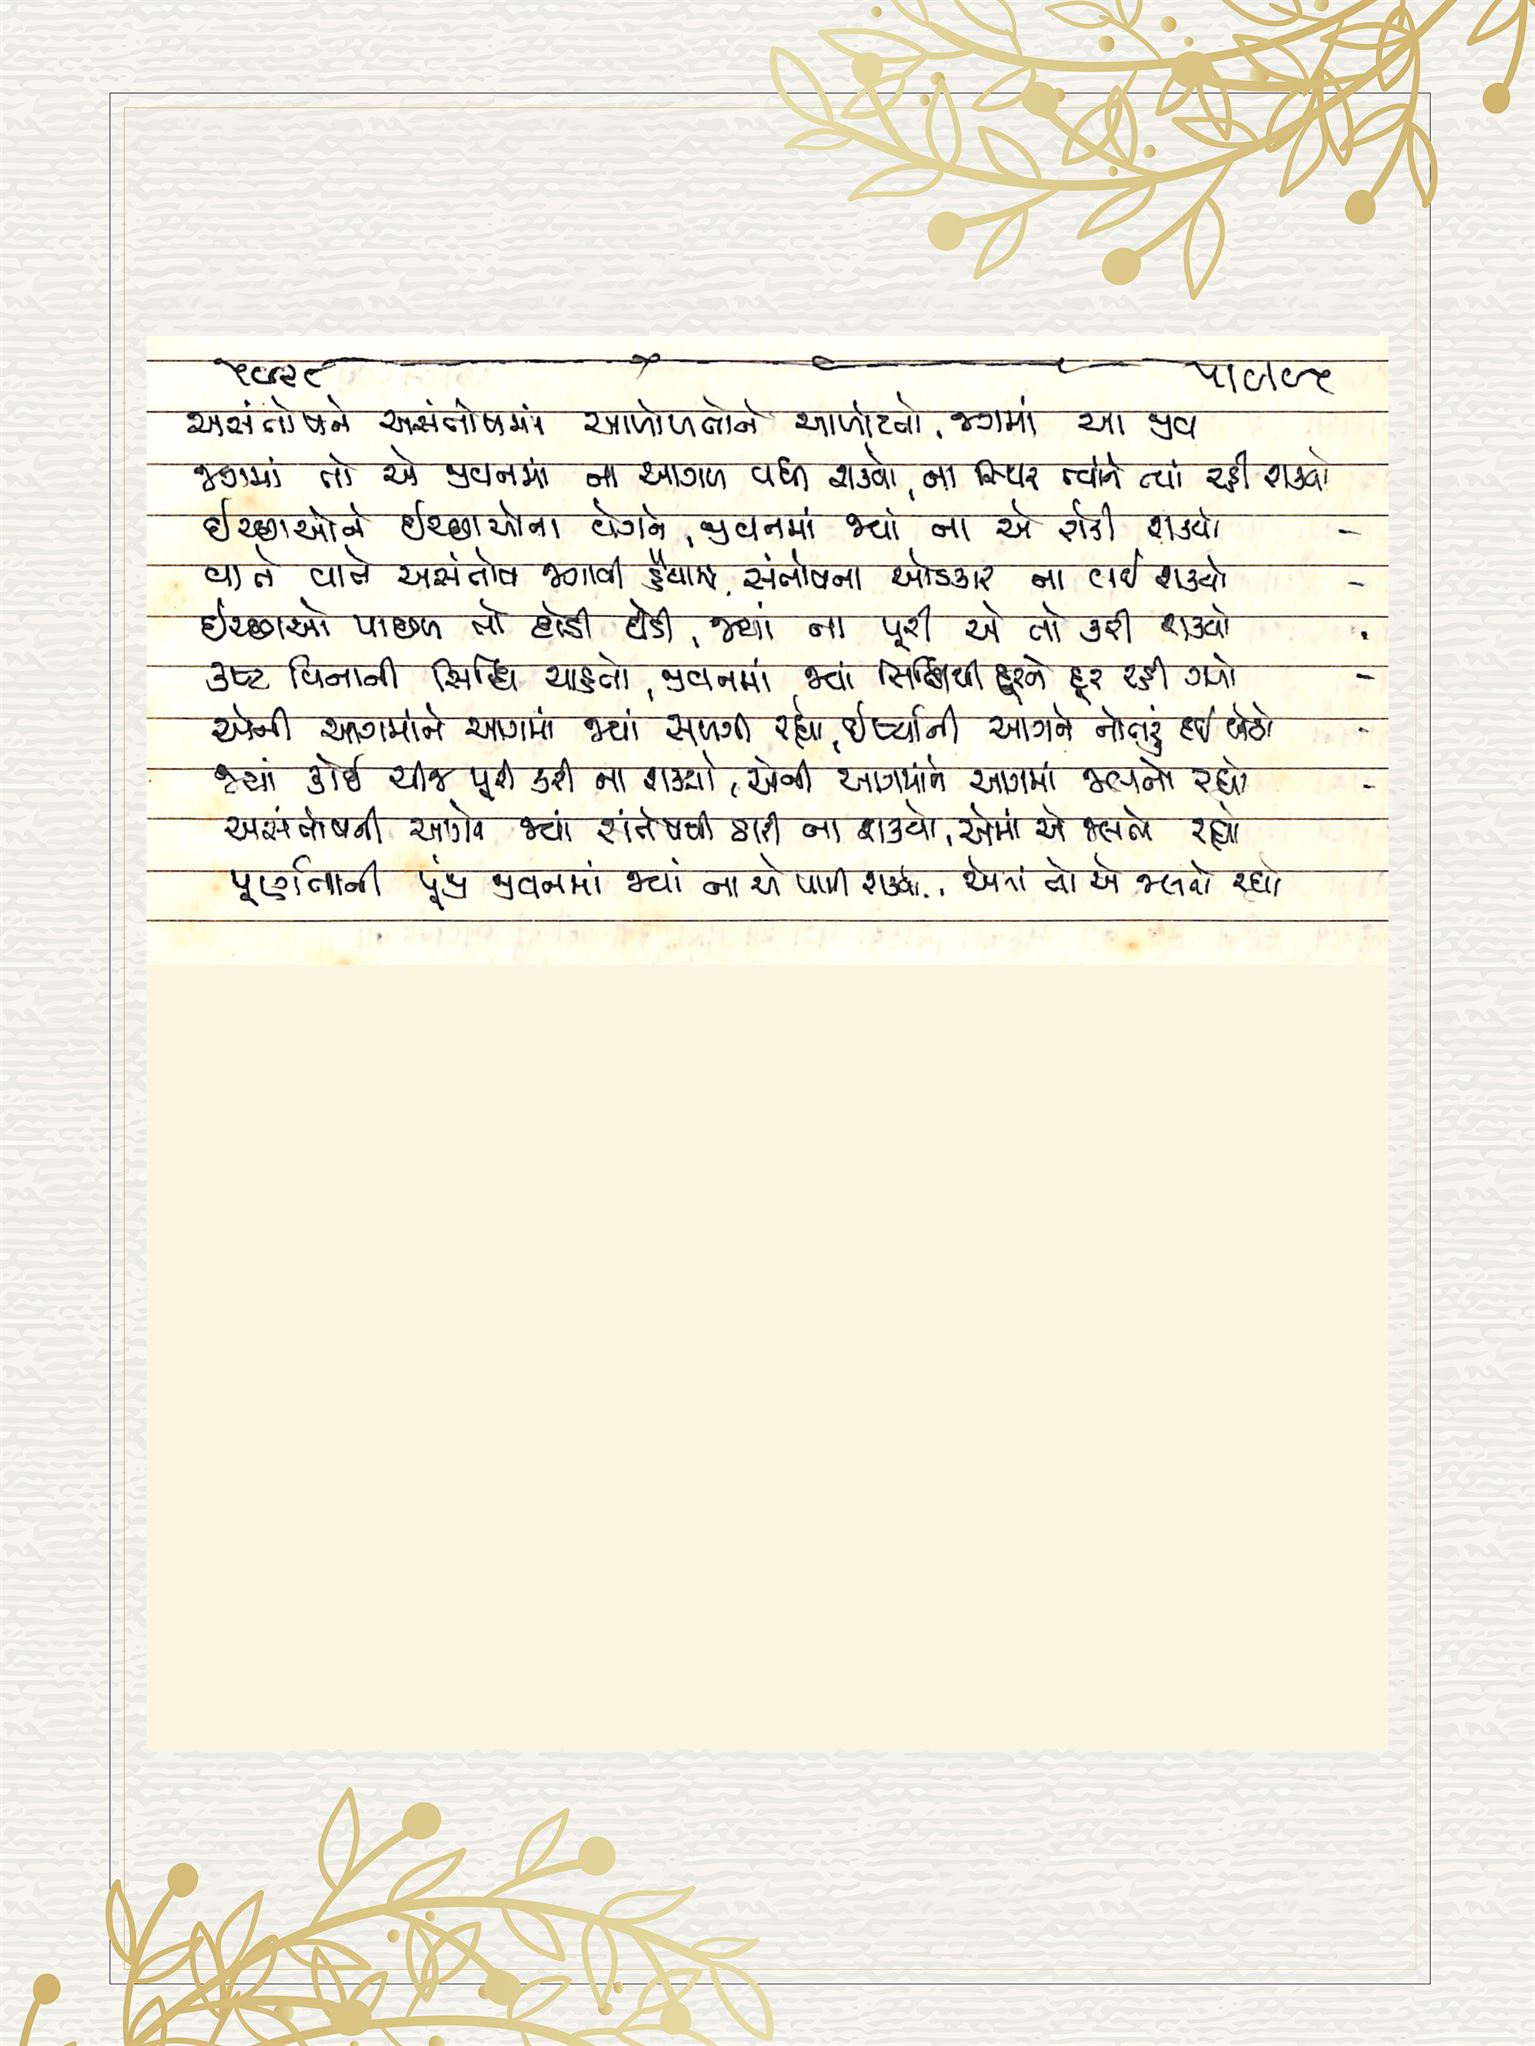 અસંતોષને અસંતોષમાં આળોળતોને આળોટતો, જગમાં આ જીવ
જગમાં તો એ જીવનમાં ના આગળ વધી શક્યો, ના સ્થિર ત્યાંને ત્યાં રહી શક્યો
ઈચ્છાઓને ઈચ્છાઓના વેગને, જીવનમાં જ્યાં ના એ રોકી શક્યો -
વાતે વાતે અસંતોષ જગાવી હૈયામાં, સંતોષના ઓડકાર ના લઈ શક્યો -
ઈચ્છાઓ પાછળ તો દોડી દોડી, જ્યાં ના પૂરી એ તો કરી શક્યો .
કષ્ટ વિનાની સિદ્ધિ ચાહતો, જીવનમાં જ્યાં સિદ્ધિથી દૂરને દૂર રહી ગયો -
એની આગમાંને આગમાં જ્યાં સળગી રહ્યો, ઈર્ષ્યાની આગને નોતરું દઈ બેઠો -
જ્યાં કોઈ ચીજ પૂરી કરી ના શક્યો, એની આગમાંને આગમાં જલતો રહ્યો -
અસંતોષની આગને જ્યાં સંતોષથી ઠારી ના શક્યો, એમાં એ જલતો રહ્યો
પૂર્ણતાની પૂંજી જીવનમાં જ્યાં ના એ પામી શક્યો, એમાં તો એ જલતો રહ્યો